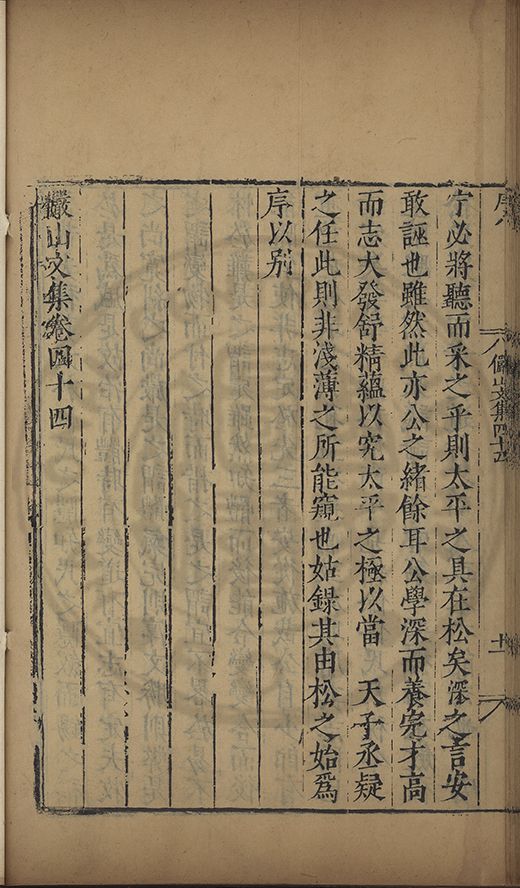 宁必將聽而采之乎則太平之具在松矣深之言安
敢誣也雖然此亦公之緒餘耳公學深而養完才高
而志大發舒精蘊以究太平之極以當　天子丞疑
之任此則非淺薄之所能窺也姑錄其由松之始爲
序以別
儼山文集卷四十四